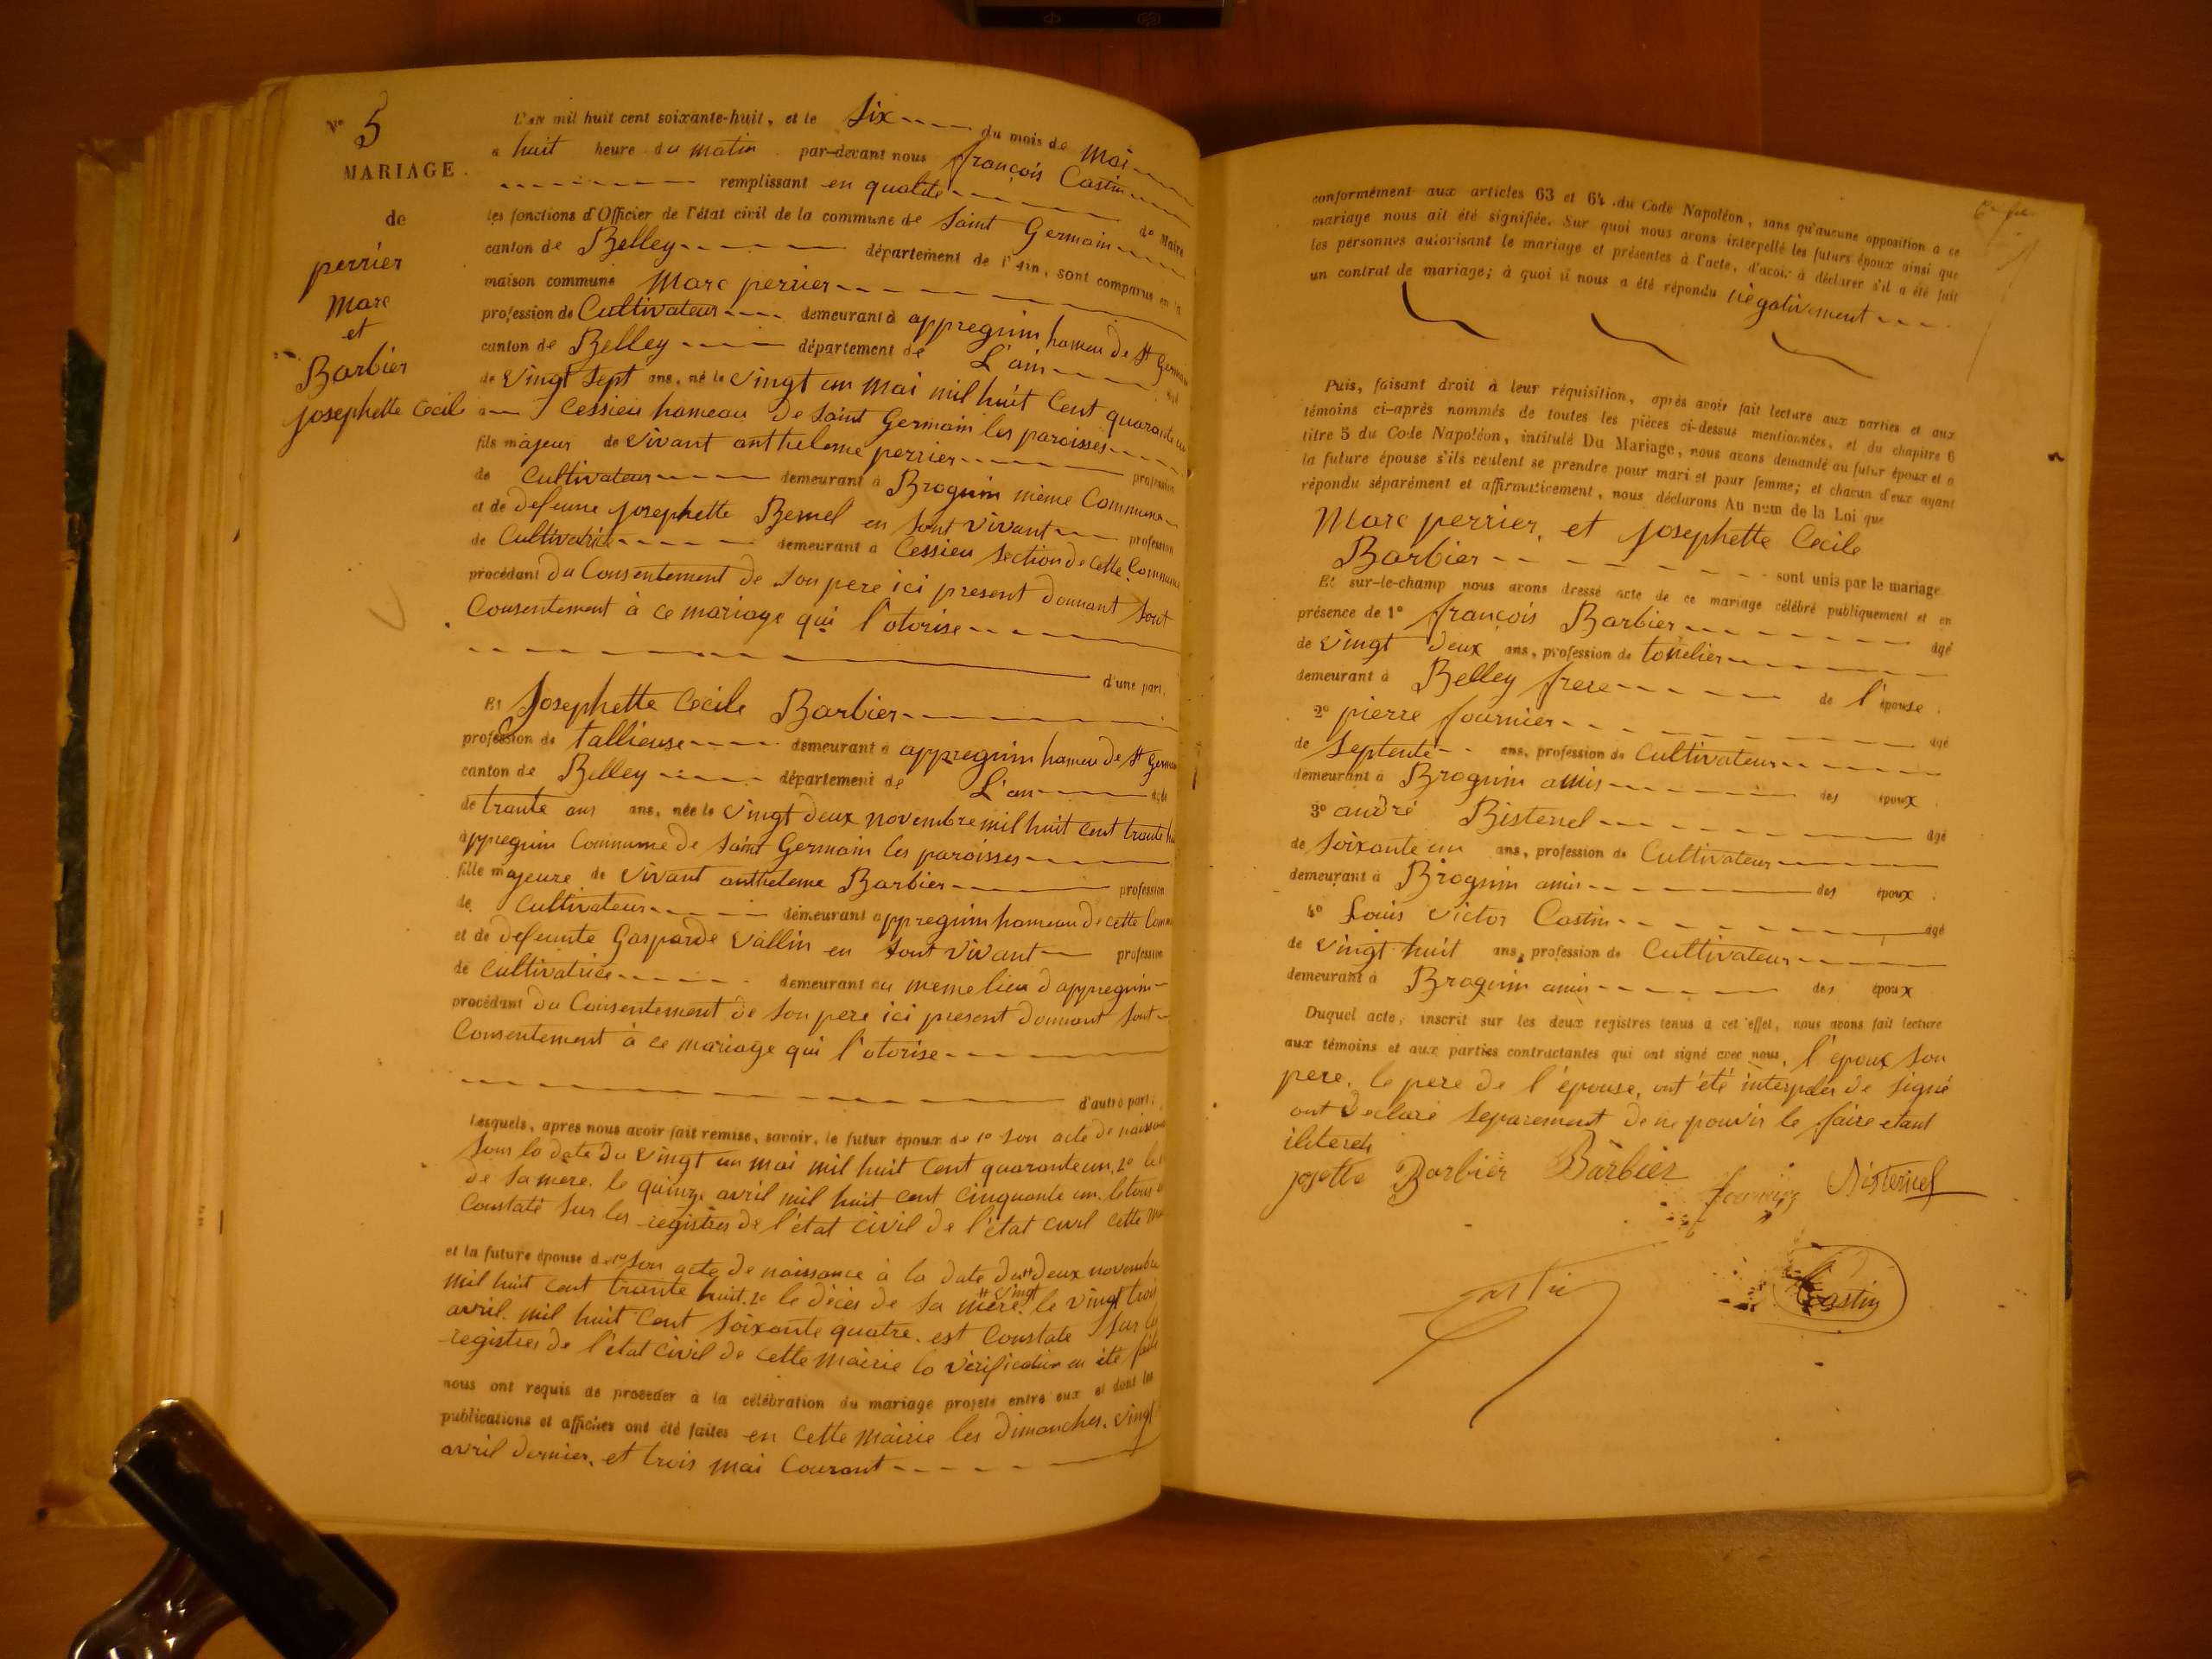 N° 5
MARIAGE.
de
perrier
Marc
et
Barbier
josephette Cecile
L'an mil huit cent soixante-huit, et le Six du mois de Mai
a huit heure du matin par-devant nous françois Castin
remplissant en qualité de Maire
les fonctions d'Officier de l'état civil de la commune de Saint Germain
canton de Belley département de l'Ain, sont comparus en la
maison commune Marc perrier
profession de Cultivateur demeurant à appregnin hameau de St Germain
canton de Belley département de L'ain agé
de Vingt Sept ans, né le Vingt un Mai mil huit Cent quarante un
a Cessieu hameau de Saint Germain les paroisses
fils majeur de Vivant antheleme perrier profession
de Cultivateur demeurant à Brognin même Commune
et de defeunte josephette Bernel en sont Vivant profession
de Cultivatrice demeurant à Cessieu Section de cette Commune
procédant du Consentement de son pere ici present donnant sont
Consentement à ce mariage qui l'otorise
d'une part,
Et Josephette Cecile Barbier
profession de tallieuse demeurant à appregnin hameau de St Germain
canton de Belley département de L'ain agée
de trante ans ans, née le Vingt deux novembre mil huit cent trante huit
appregnin Commune de Saint Germain les paroisses
fille majeure de Vivant antheleme Barbier profession
de Cultivateur demeurant appregnin hameau de cette Commune
et de defeunte Gasparde Vallin en sont Vivant profession
de Cultivatrice demeurant au meme lieu d'appregnin
procédant du Consentement de son pere ici present donnant sont
Consentement à ce mariage qui l'otorise
d'autre part;
Lesquels, après nous avoir fait remise, savoir, le futur époux de 1° son acte de naissance
Sous la date du Vingt un mai mil huit Cent quarante un, 2°
de sa mère le quinze avril mil huit cent cinquante un, le tous
Constaté sur les registres de l'état civil de l'état civil cette
et la future épouse de 1° son acte de naissance à la date du deux novembre
mil huit cent trante huit, 2° le décès de sa mère, vingt le Vingt trois
avril mil huit Cent soixante quatre est Constate sur les
registres de l'état civil de cette Mairie la Vérification en été faite
nous ont requis de procéder à la célébration du mariage projeté entre eux et dont les
publications et affiches ont été faites en cette Mairie les dimanches, vingt
avril dernier, et trois mai Courant
conformément aux articles 63 et 64 du Code Napoléon, sans qu'aucune opposition a ce
mariage nous ait été signifiée. Sur quoi nous avons interpellé les futurs époux ainsi que
les personnes autorisant le mariage et présentes à l'acte, d'avoir à déclarer s'il a été fait
un contrat de mariage; à quoi il nous a été répondu négativement
Puis, faisant droit à leur réquisition, après avoir fait lecture aux parties et aux
témoins ci-après nommés de toutes les pièces ci-dessus mentionnées, et du chapitre 6
titre 5 du Code Napoléon, intitulé Du Mariage, nous avons demandé au futur époux et a
la future épouse s'ils veulent se prendre pour mari et pour femme; et chacun d'eux ayant
répondu séparément et affirmativement, nous déclarons Au nom de la Loi que
Marc perrier, et josephette Cecile
Barbier sont unis par le mariage
Et sur-le-champ nous avons dressé acte de ce mariage célébré publiquement et en
présence de 1° françois Barbier agé
de Vingt deux ans, profession de tonelier
demeurant à Belley frere de l'épouse.
2° pierre fournier agé
de Septente ans, profession de Cultivateur
demeurant à Brognin amis des époux.
3° andré Bisternel agé
de Soixante un ans, profession de Cultivateur
demeurant à Brognin amis des époux.
4° Louis victor Castin agé
de Vingt huit ans, profession de Cultivateur
demeurant à Brognin amis des époux
Duquel acte, inscrit sur les deux registres tenus à cet effet, nous avons fait lecture
aux témoins et aux parties contractantes qui ont signé avec nous, l'époux son
pere, le pere de l'épouse, ont été interpeler de signé
ont declaré séparement de ne pouvir le faire etant
Barbier Barbier
Castin